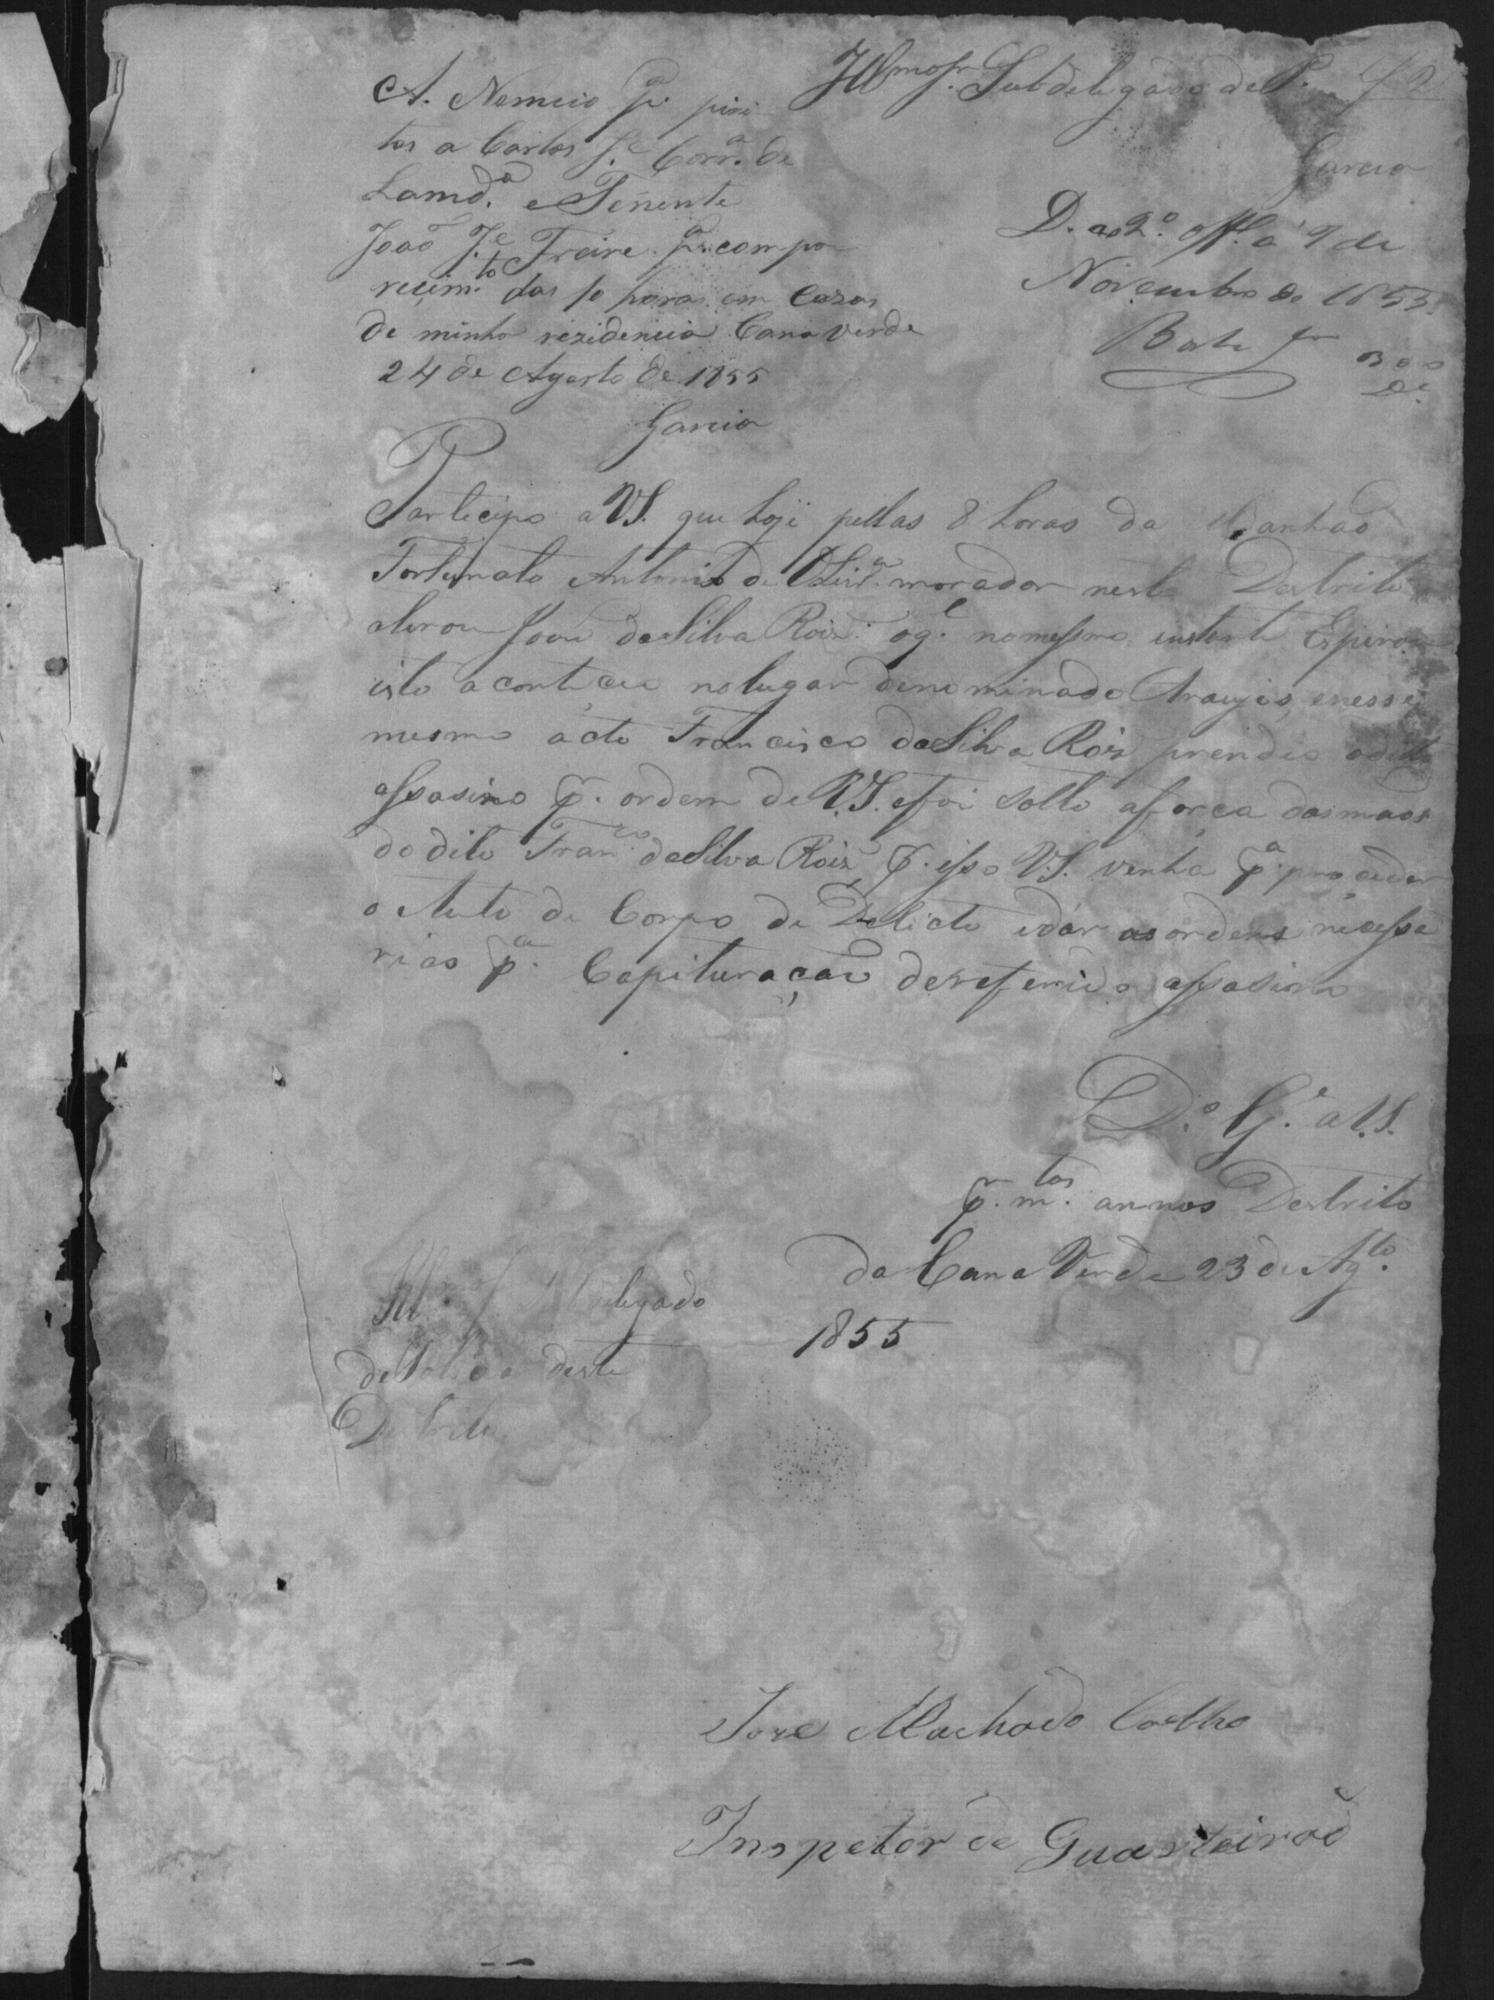 Illmo Sr. Subdelegado de P.
Garcia
A. Nomeio pa. piri
tos a Carlos Je. Corra. de
Lamda. e Tenente
João Je. Freire pa. compa
recimto. das 10 horas em Cazas
de minha rezidencia Cana verde
24 de Agosto de 1855
Garcia
D. ao 2º. offo. a 9 de
Novembro de 1855
300
Participo a V.S. que hoje pellas 8 horas da Manhãa
Fortunato Antonio de Olivra. morador neste Destrito
aterou João da Silva Roiz. oqe. no mesmo instante Espirou
isto aconteceu no lugar denominado Araujos, enesse
mesmo acto Francisco da Silva Roiz prendeo o dito
assasino pr. ordem de V.S. e foi solto aforça das maos
do dito Franco. da Silva Roiz, pr. isso V.S. venha pa. proceder
o Auto de Corpo de Delicto edár as ordens necessa
rias pa. Capituração do referido assasino
Ds. Ge. a V.S.
pr. mtos. annos Destrito
da Cana Verde 23 de Agto.
1855
Illmo Sr. Subdelegado
de Policia deste
Destrito
Joze Machado Coelho
Inspetor de Guarteirão